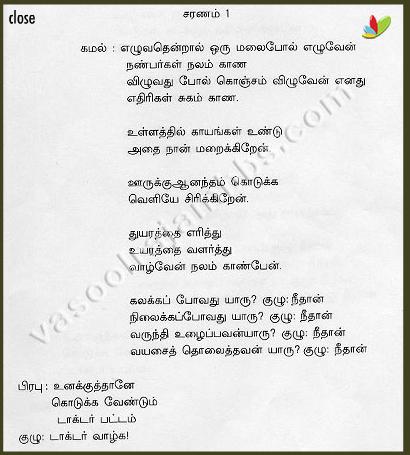 close
சரணம் 1
கமல் : எழுவதென்றால் ஒரு மலைபோல் எழுவேன்
நண்பர்கள் நலம் காண
விழுவது போல் கொஞ்சம் விழுவேன் எனது
எதிரிகள் சுகம் காண.
உள்ளத்தில் காயங்கள் உண்டு
அதை நான் மறைக்கிறேன்.
ஊருக்குஆனந்தம் கொடுக்க
வெளியே சிரிக்கிறேன்.
துயரத்தை எரித்து
உயரத்தை வளர்த்து
வாழ்வேன் நலம் காண்பேன்.
கலக்கப் போவது யாரு? குழு: நீதான்
நிலைக்கப்போவது யாரு? குழு: நீதான்
வருந்தி உழைப்பவன்யாரு? குழு: நீதான்
வயசைத் தொலைத்தவன் யாரு? குழு: நீதான்
பிரபு : உனக்குத்தானே
கொடுக்க வேண்டும்
டாக்டர் பட்டம்
குழு: டாக்டர் வாழ்க!